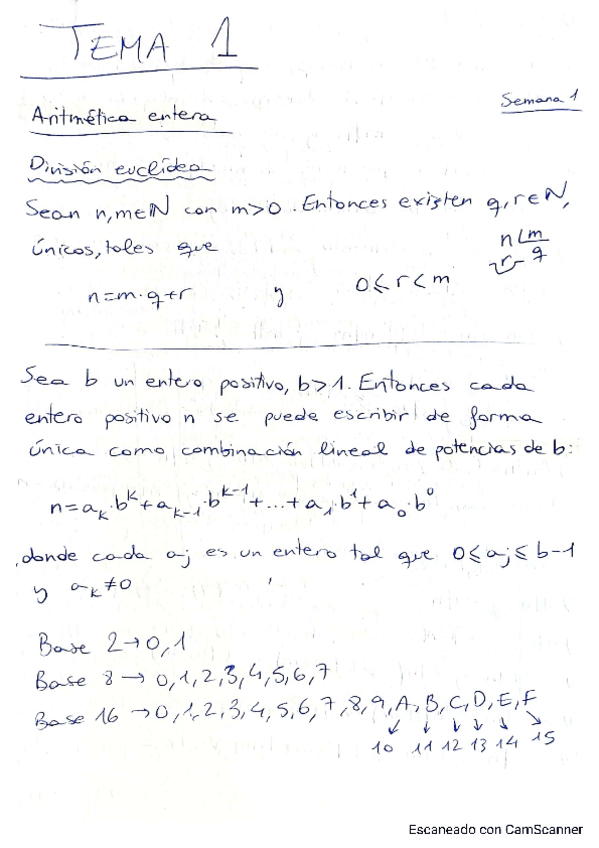 TEMA 1
Semana 1
Aritmética entera
División euclídea
Sean n,m∈ℕ con m>0. Entonces existen q,r∈ℕ,
únicos, tales que
n | m
r q
n=m·q+r y 0≤r<m
Sea b un entero positivo, b>1. Entonces cada
entero positivo n se puede escribir de forma
única como combinación lineal de potencias de b:
n=aₖ·bᵏ+aₖ₋₁·bᵏ⁻¹+...+a₁·b¹+a₀·b⁰
donde cada aⱼ es un entero tal que 0≤aⱼ≤b-1
y aₖ≠0
Base 2→0,1
Base 8→0,1,2,3,4,5,6,7
Base 16→0,1,2,3,4,5,6,7,8,9,A,B,C,D,E,F
↓ ↓ ↓ ↓ ↓ ↘
10 11 12 13 14 15
Escaneado con CamScanner